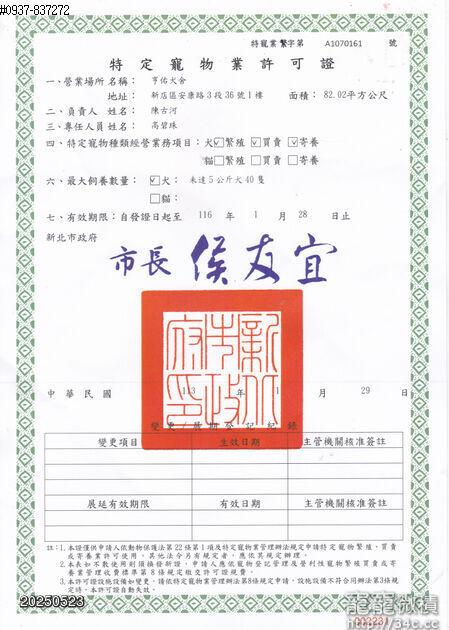 #0937-837272
特寵業繁字第 A1070161 號
特定寵物業許可證
一、營業場所名稱： 亨佑犬舍
地址： 新店區安康路3段36號1樓 面積： 82.02平方公尺
二、負責人姓名： 陳古河
三、專任人員姓名： 高碧珠
四、特定寵物種類經營業務項目： 犬☑繁殖 ☑買賣 ☑寄養
貓□繁殖 □買賣 □寄養
六、最大飼養數量： ☑犬： 未達5公斤犬40隻
□貓：
七、有效期限：自發證日起至 116 年 1 月 28 日止
新北市政府
市長 侯友宜
新北市政府印
中華民國 113 年 1 月 29 日
變更/展期登記紀錄
變更項目 生效日期 主管機關核准簽註
展延有效期限 有效日期 主管機關核准簽註
註：1.本證僅供申請人依動物保護法第22條第1項及特定寵物業管理辦法規定申請特定寵物繁殖、買賣
或寄養業許可使用，其他法令另有規定者，應依其規定辦理。
2.本表如不敷使用則須換發新證，申請人應依寵物登記管理及營利性寵物繁殖買賣或寄
養業管理收費標準第8條規定繳交許可證規費。
3.本許可證設施設備如變更，請依特定寵物業管理辦法第8條規定申請，設施設備不符合同辦法第3條規
定時，本許可證自動失效。
20250523
003231
龍龍微積
http://34c.cc